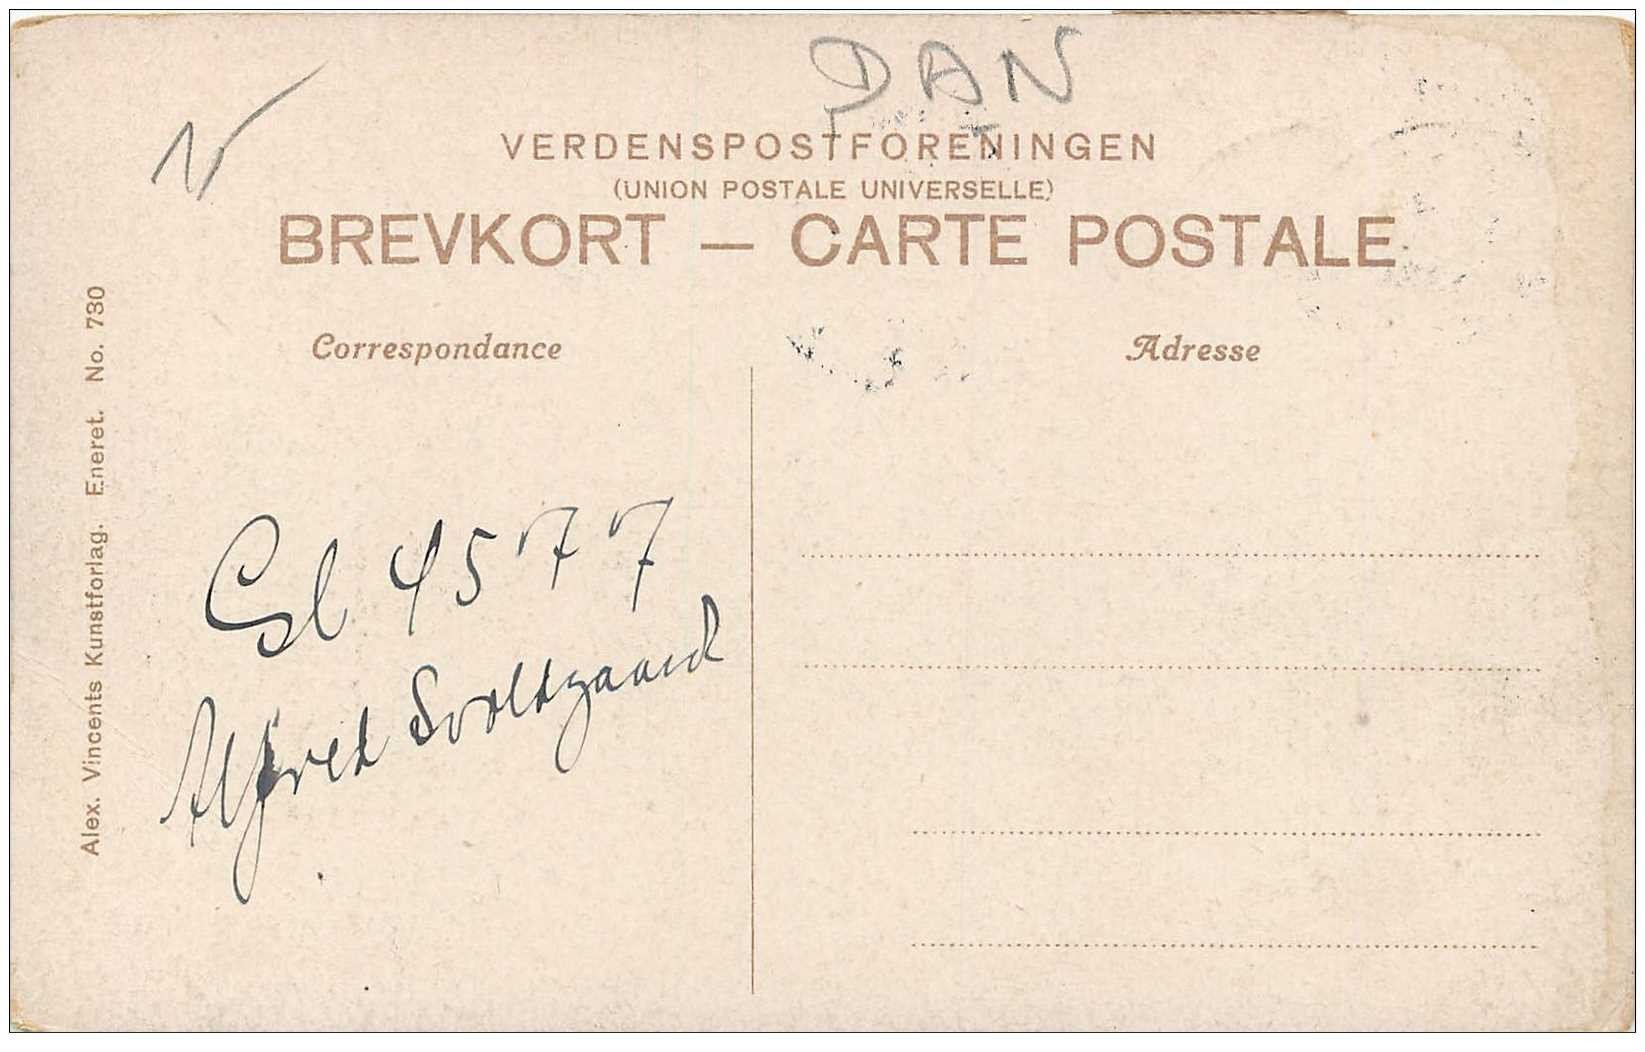 DAN
VERDENSPOSTFORENINGEN
(UNION POSTALE UNIVERSELLE)
BREVKORT — CARTE POSTALE
Correspondance
Adresse
Alex. Vincents Kunstforlag. Eneret. No. 730
4577
Alfred